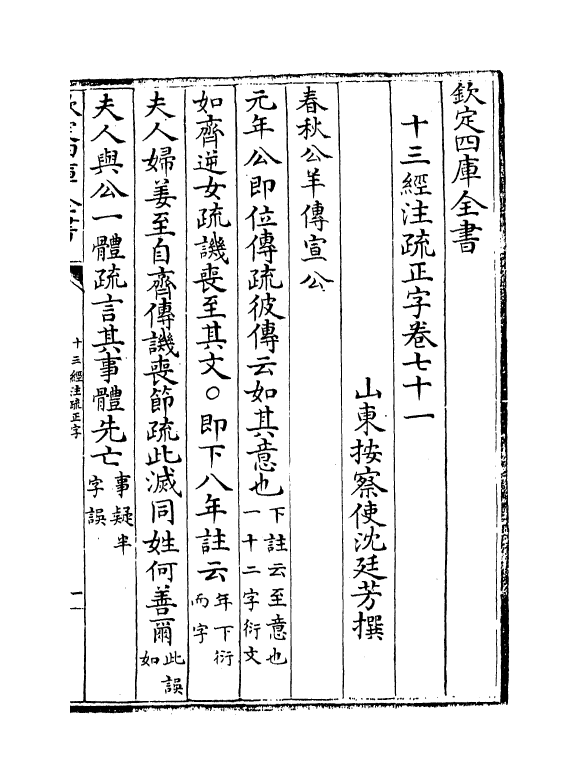 欽定四庫全書
十三經注疏正字卷七十一
山東按察使沈廷芳撰
春秋公羊傳宣公
元年公即位傳疏彼傳云如其意也下註云至意也一十二字衍文
如齊逆女疏譏喪至其文○即下八年註云年下衍而字
夫人婦姜至自齊傳譏喪節疏此滅同姓何善爾此誤如
夫人與公一體疏言其事體先亡事疑半字誤
十三經注疏正字
一